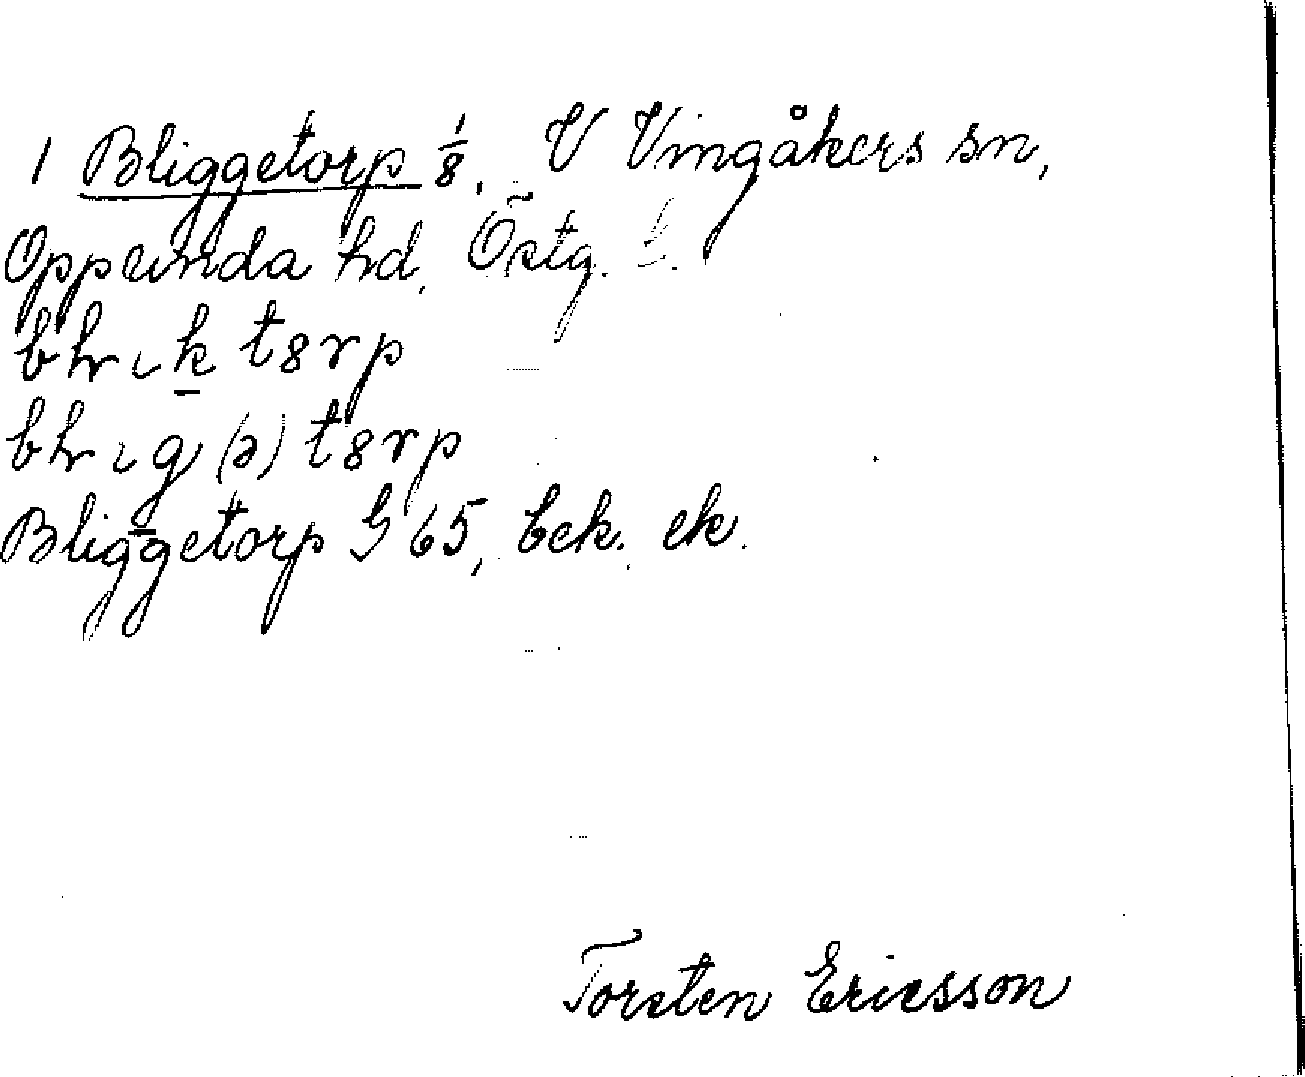 1 Bliggetorp 1/8, V Vingåkers sn,
Oppunda hd, Östg. l.
bhık t8rp
bhıg (ə) t8rp
Bliggetorp G 65, bek. ek.
Torsten Ericsson